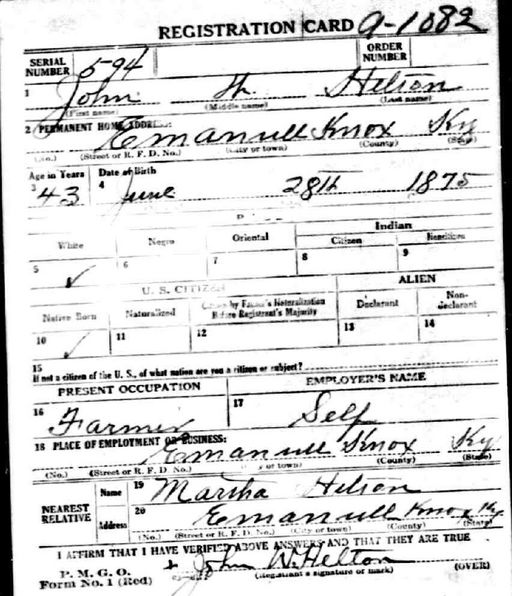 REGISTRATION CARD 9-1082
SERIAL NUMBER 594 ORDER NUMBER
1 John Helton
(First name) (Middle name) (Last name)
2 PERMANENT HOME ADDRESS: Emanuell Knox Ky
(No.) (Street or R. F. D. No.) (City or town) (County) (State)
Age in Years Date of Birth
3 43 4 June 28th 1875
White Negro Oriental Indian
Citizen
5 ✓ 6 7 8 9
U. S. CITIZEN ALIEN
Native Born Naturalized Citizen by Father's Naturalization Before Registrant's Majority Declarant Non-declarant
10 ✓ 11 12 13 14
15
If not a citizen of the U. S., of what nation are you a citizen or subject?
PRESENT OCCUPATION EMPLOYER'S NAME
16 Farmer 17 Self
18 PLACE OF EMPLOYMENT OR BUSINESS: Emanuell Knox Ky
(No.) (Street or R. F. D. No.) (City or town) (County) (State)
NEAREST RELATIVE Name 19 Martha Helton
Address 20 Emanuell Knox Ky
(No.) (Street or R. F. D. No.) (City or town) (County) (State)
I AFFIRM THAT I HAVE VERIFIED ABOVE ANSWERS AND THAT THEY ARE TRUE
P. M. G. O. John W. Helton
Form No. 1 (Red) (Registrant's signature or mark) (OVER)